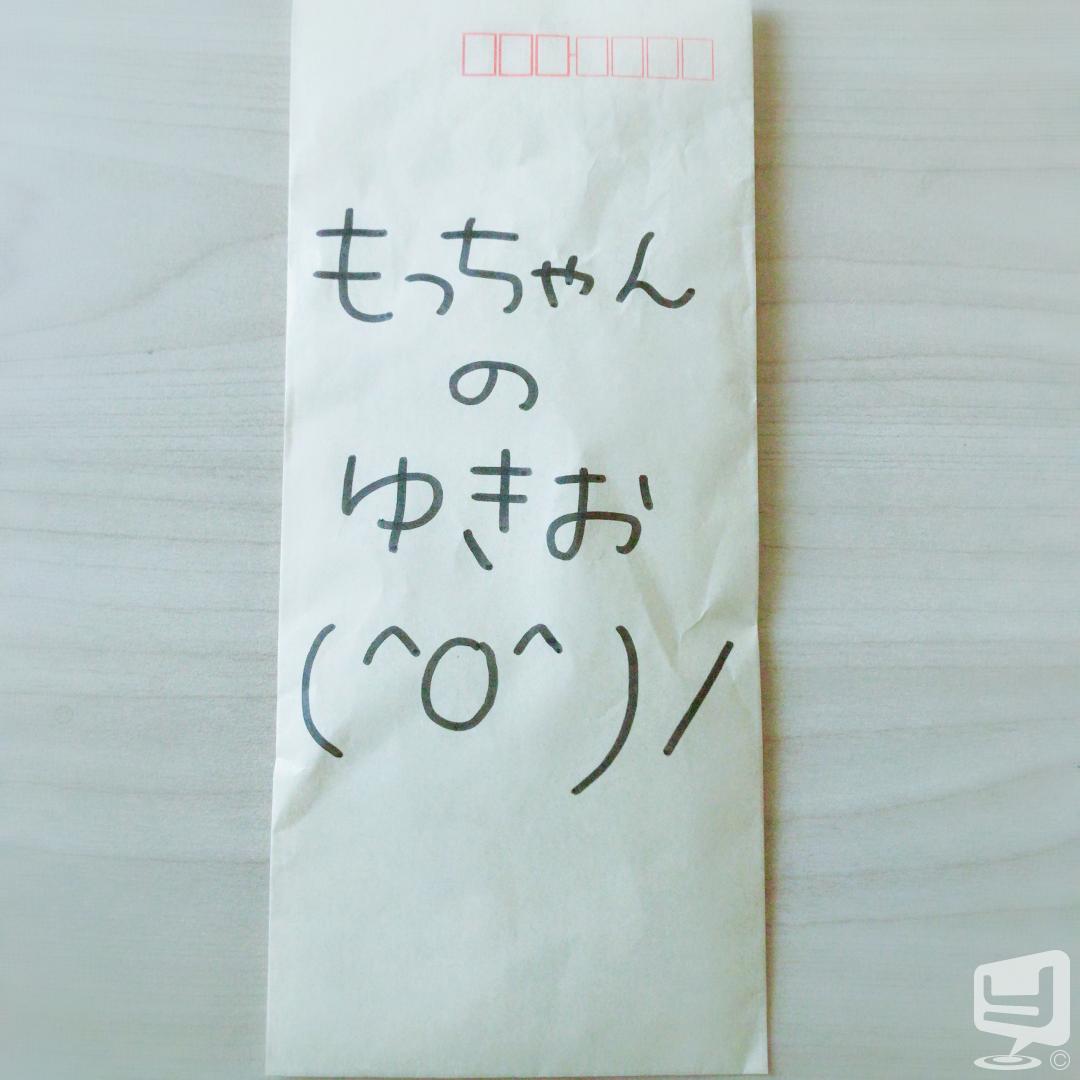 もっちゃん
の
ゆきお
(^O^)/
©